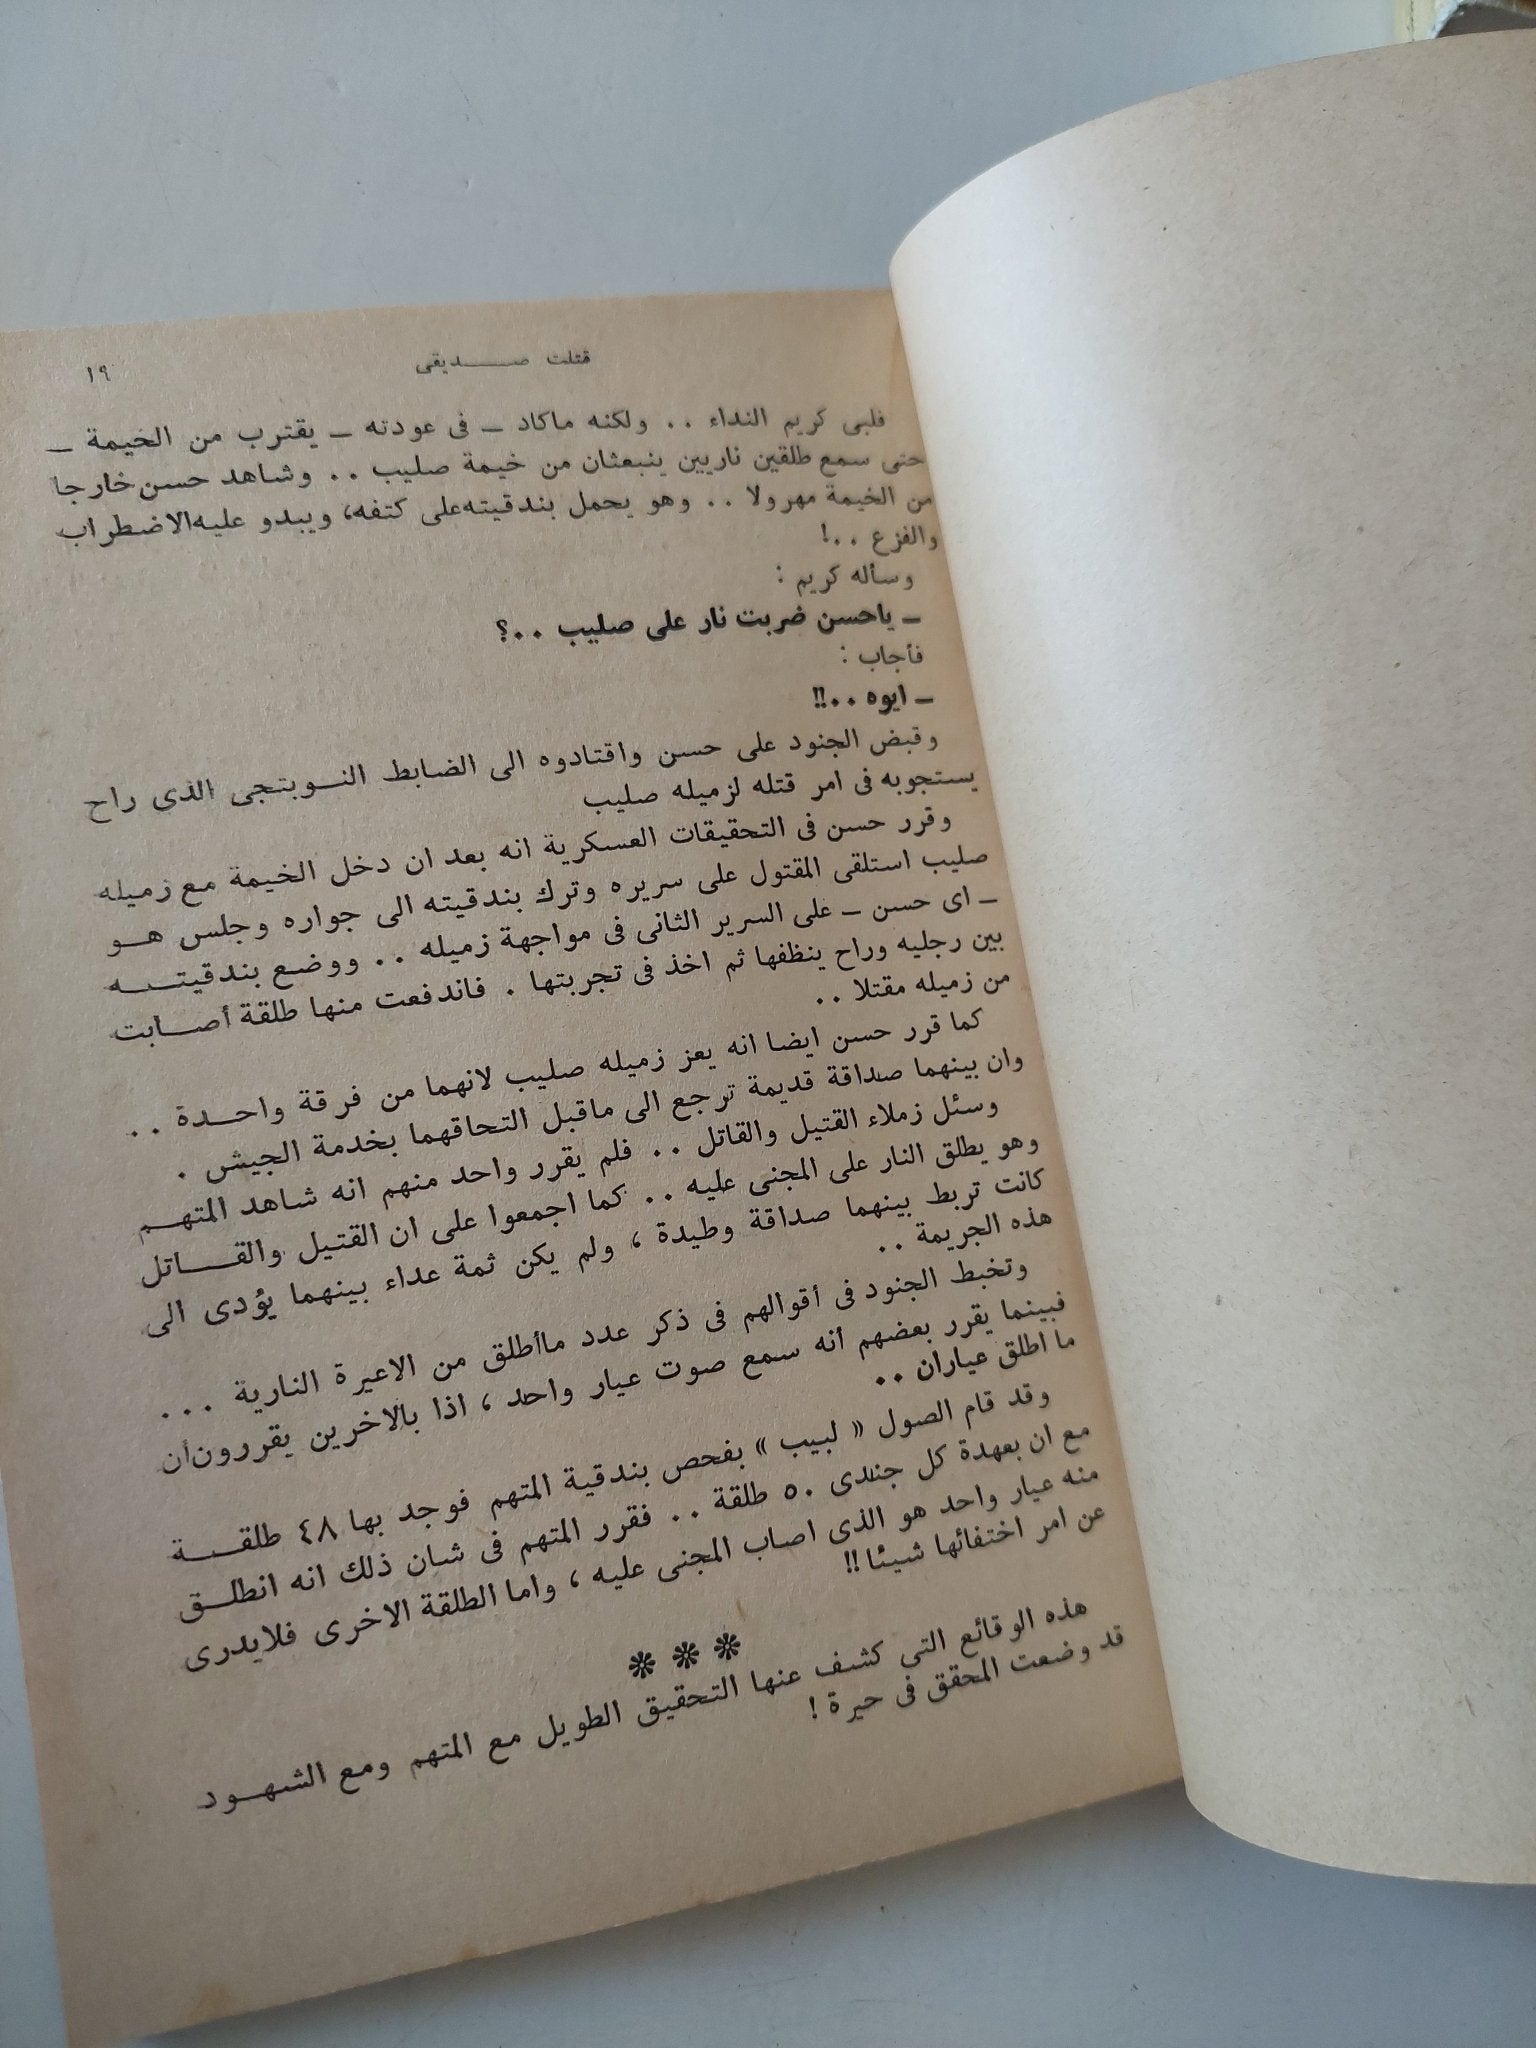 قتلت صديقى ١٩
فلبى كريم النداء .. ولكنه ماكاد ــ فى عودته ــ يقترب من الخيمة ــ
حتى سمع طلقين ناريين ينبعثان من خيمة صليب .. وشاهد حسن خارجا
من الخيمة مهرولا .. وهو يحمل بندقيته على كتفه، ويبدو عليه الاضطراب
والفزع ..!
وسأله كريم :
ــ ياحسن ضربت نار على صليب ..؟
فأجاب :
ــ ايوه ..!!
وقبض الجنود على حسن واقتادوه الى الضابط النوبتجى الذى راح
يستجوبه فى امر قتله لزميله صليب
وقرر حسن فى التحقيقات العسكرية انه بعد ان دخل الخيمة مع زميله
صليب استلقى المقتول على سريره وترك بندقيته الى جواره وجلس هو
ــ اى حسن ــ على السرير الثانى فى مواجهة زميله .. ووضع بندقيته
بين رجليه وراح ينظفها ثم اخذ فى تجربتها . فاندفعت منها طلقة أصابت
من زميله مقتلا ..
كما قرر حسن ايضا انه يعز زميله صليب لانهما من فرقة واحدة ..
وان بينهما صداقة قديمة ترجع الى ماقبل التحاقهما بخدمة الجيش .
وسئل زملاء القتيل والقاتل .. فلم يقرر واحد منهم انه شاهد المتهم
وهو يطلق النار على المجنى عليه .. كما اجمعوا على ان القتيل والقاتل
كانت تربط بينهما صداقة وطيدة ، ولم يكن ثمة عداء بينهما يؤدى الى
هذه الجريمة ..
وتخبط الجنود فى أقوالهم فى ذكر عدد ماأطلق من الاعيرة النارية ...
فبينما يقرر بعضهم أنه سمع صوت عيار واحد ، اذا بالاخرين يقررون أن
ما اطلق عياران ..
وقد قام الصول « لبيب » بفحص بندقية المتهم فوجد بها ٤٨ طلقة
مع ان بعهدة كل جندى ٥٠ طلقة .. فقرر المتهم فى شان ذلك انه انطلق
منه عيار واحد هو الذى اصاب المجنى عليه ، واما الطلقة الاخرى فلايدرى
عن امر اختفائها شيئا !!
❊ ❊ ❊
هذه الوقائع التى كشف عنها التحقيق الطويل مع المتهم ومع الشهود
قد وضعت المحقق فى حيرة !